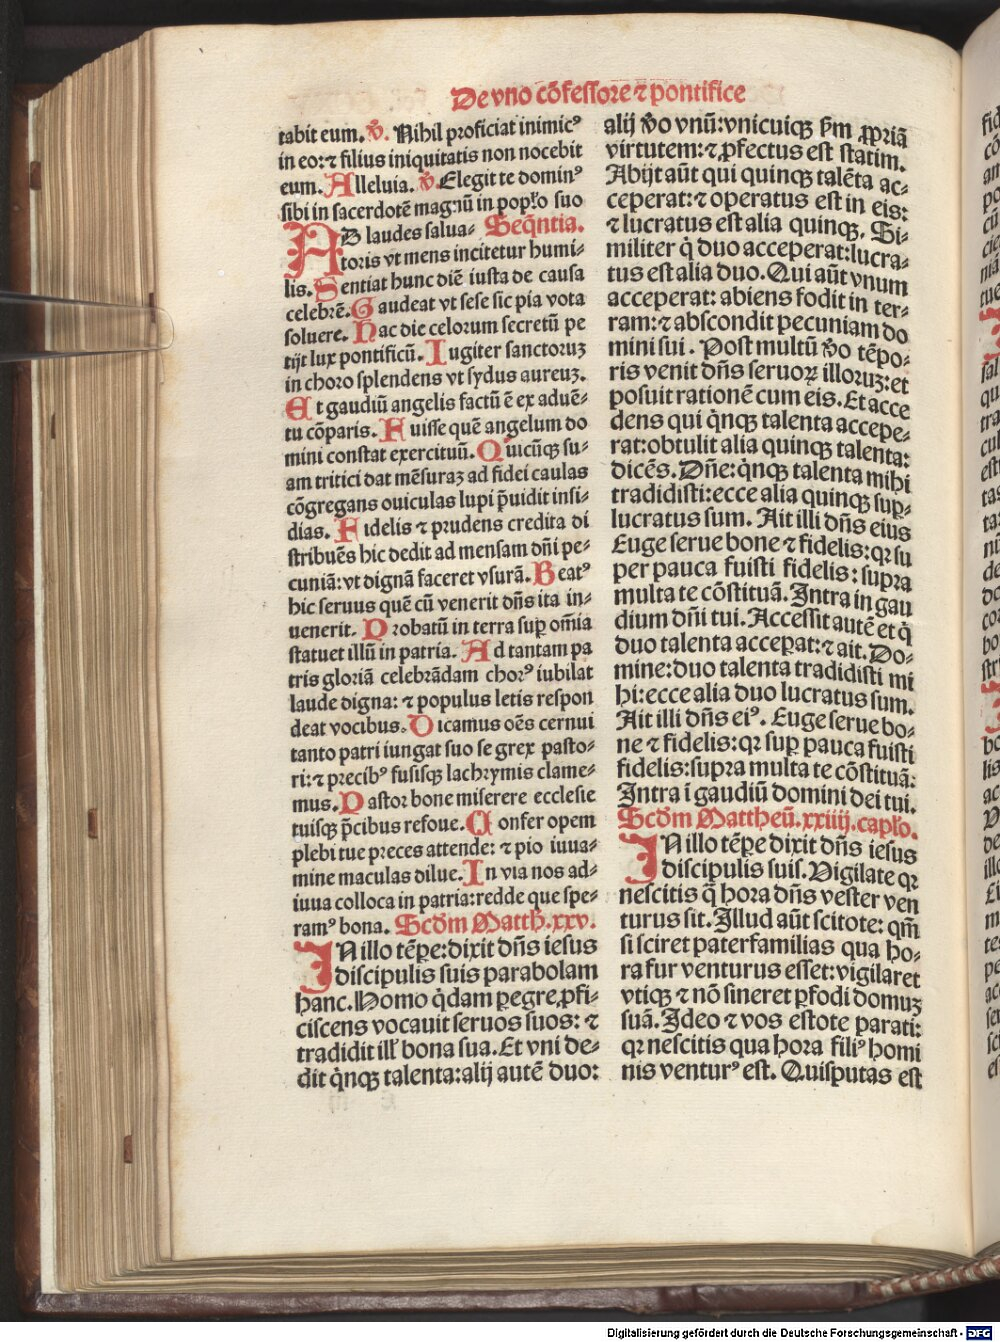 De vno cōfessore ⁊ pontifice
tabit eum. ℣. Nihil proficiat inimicꝰ
in eo: ⁊ filius iniquitatis non nocebit
eum. Alleluia. ℣. Elegit te dominꝰ
sibi in sacerdotē magnū in popl'o suo
AD laudes salua⸗ Seq̄ntia.
toris vt mens incitetur humi⸗
lis. Sentiat hunc diē iusta de causa
celebrē. Gaudeat vt sese sic pia vota
soluere. Hac die celorum secretū pe
tijt lux pontificū. Iugiter sanctoruꝫ
in choro splendens vt sydus aureuꝫ.
Et gaudiū angelis factū ē ex aduē⸗
tu cōparis. Fuisse quē angelum do
mini constat exercituū. Quicūqꝫ su⸗
am tritici dat mēsuraꝫ ad fidei caulas
cōgregans ouiculas lupi p̄uidit insi⸗
dias. Fidelis ⁊ prudens credita di
stribuēs hic dedit ad mensam dn̄i pe⸗
cuniā: vt dignā faceret vsurā. Beatꝰ
hic seruus quē cū venerit dn̄s ita in⸗
uenerit. Probatū in terra suꝑ om̄ia
statuet illū in patria. Ad tantam pa
tris gloriā celebrādam chorꝰ iubilat
laude digna: ⁊ populus letis respon
deat vocibus. Dicamus oēs cernui
tanto patri iungat suo se grex pasto⸗
ri: ⁊ precibꝰ fusisqꝫ lachrymis clame⸗
mus. Pastor bone miserere ecclesie
tuisqꝫ p̄cibus refoue. Confer opem
plebi tue preces attende: ⁊ pio iuua⸗
mine maculas dilue. In via nos ad⸗
iuua colloca in patria: redde que spe⸗
ramꝰ bona. Scd̄m Matth. xxv.
IN illo tēꝑe: dixit dn̄s iesus
discipulis suis parabolam
hanc. Homo q̇dam ꝑegre ꝓfi⸗
ciscens vocauit seruos suos: ⁊
tradidit ill' bona sua. Et vni de⸗
dit q̇nqꝫ talenta: alij autē duo:
alij v̄o vnū: vnicuiqꝫ s̄m ꝓpriā
virtutem: ⁊ ꝓfectus est statim.
Abijt aūt qui quinqꝫ talēta ac⸗
ceperat: ⁊ operatus est in eis:
⁊ lucratus est alia quinqꝫ. Si⸗
militer q̇ duo acceperat: lucra⸗
tus est alia duo. Qui aūt vnum
acceperat: abiens fodit in ter⸗
ram: ⁊ abscondit pecuniam do
mini sui. Post multū v̄o tēpo⸗
ris venit dn̄s seruoꝝ illoruꝫ: et
posuit rationē cum eis. Et acce
dens qui q̇nqꝫ talenta accepe⸗
rat: obtulit alia quinqꝫ talenta:
dicēs. Dn̄e: q̇nqꝫ talenta mihi
tradidisti: ecce alia quinqꝫ suꝑ⸗
lucratus sum. Ait illi dn̄s eius
Euge serue bone ⁊ fidelis: qꝛ su
per pauca fuisti fidelis: supra
multa te cōstituā. Intra in gau
dium dn̄i tui. Accessit autē et q̇
duo talenta acceꝑat: ⁊ ait. Do⸗
mine: duo talenta tradidisti mi
hi: ecce alia duo lucratus sum.
Ait illi dn̄s eiꝰ. Euge serue bo⸗
ne ⁊ fidelis: qꝛ suꝑ pauca fuisti
fidelis: supra multa te cōstituā:
Intra ī gaudiū domini dei tui.
Scd̄m Mattheū. xxiiij. capl'o.
IN illo tēꝑe dixit dn̄s iesus
discipulis suis. Vigilate qꝛ
nescitis q̄ hora dn̄s vester ven
turus sit. Illud aūt scitote: qm̄
si sciret paterfamilias qua ho⸗
ra fur venturus esset: vigilaret
vtiqꝫ ⁊ nō sineret ꝑfodi domuꝫ
suā. Ideo ⁊ vos estote parati:
qꝛ nescitis qua hora filiꝰ homi
nis venturꝰ est. Quisputas est
Digitalisierung gefördert durch die Deutsche Forschungsgemeinschaft - DFG